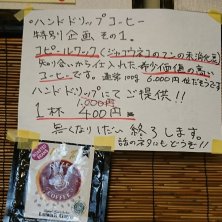 ◦ハンドドリップコーヒー
特別企画 その1.
コピ・ルワック(ジャコウネコのフンの未消化豆)
知り合いから仕入れた希少価値の高い
コーヒーです。通常100g
6,000位だそうです
ハンドドリップにてご提供!!
1,000円
1杯 400円
無くなりしだい終了します。
話のネタにもどうぞ!!
COFFEE